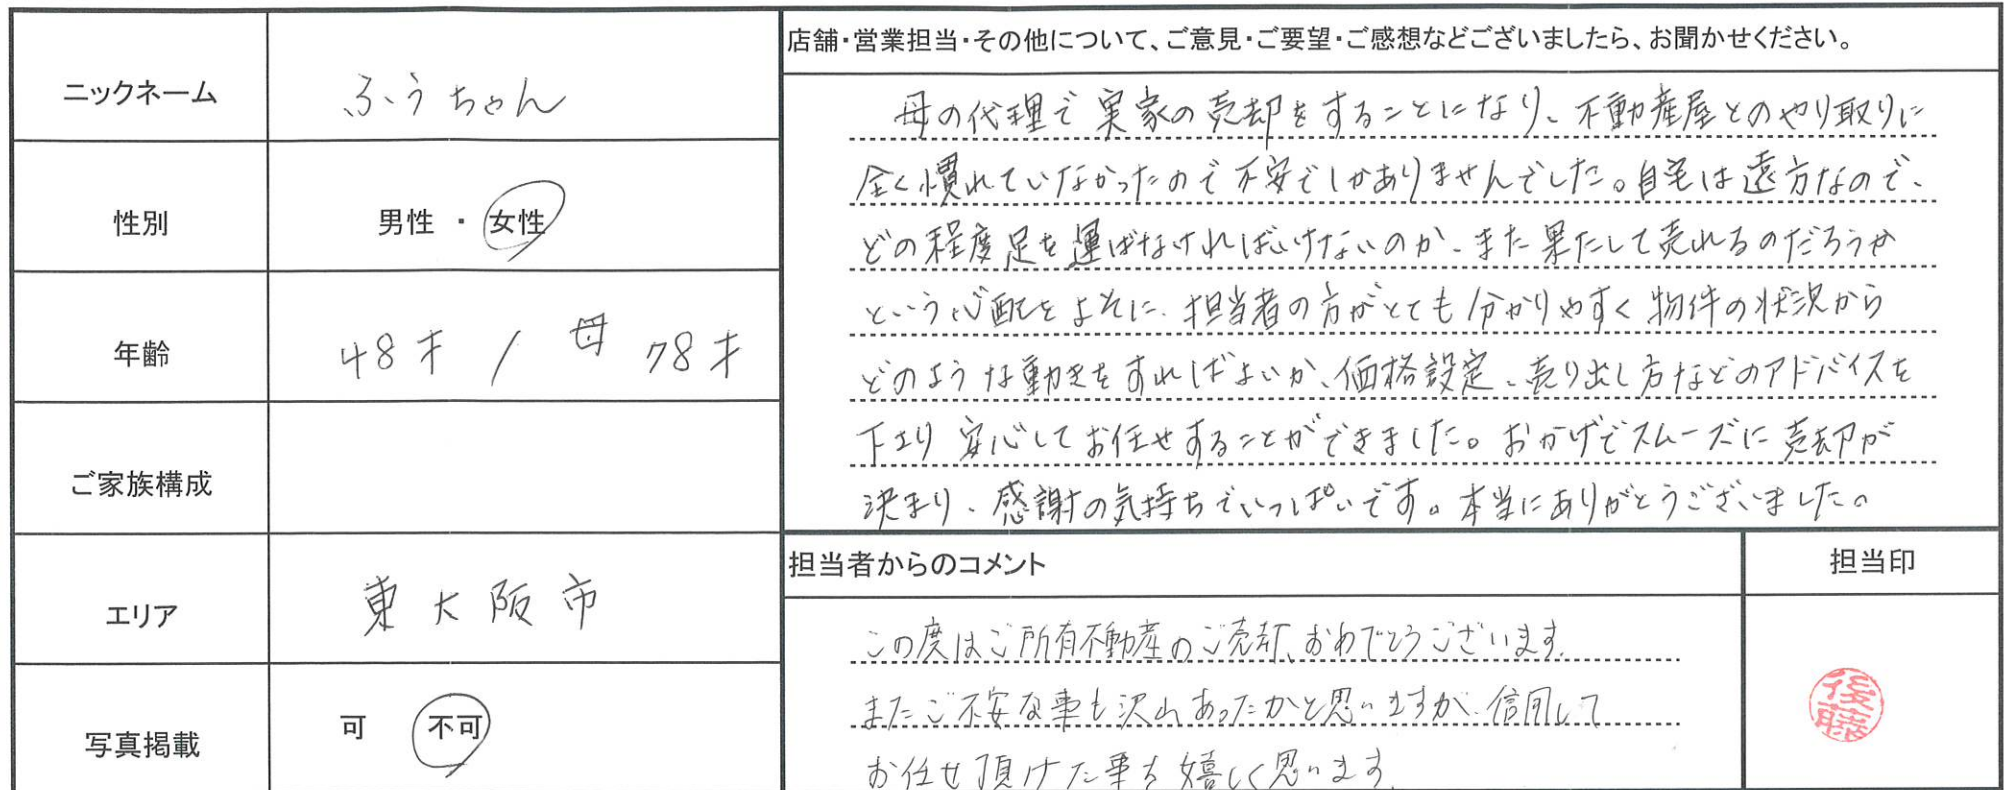 ニックネーム ふうちゃん
性別 男性 ・ 女性
年齢 48才 / 母 78才
ご家族構成
エリア 東大阪市
写真掲載 可 不可
店舗・営業担当・その他について、ご意見・ご要望・ご感想などございましたら、お聞かせください。
母の代理で実家の売却をすることになり、不動産屋とのやり取りに
全く慣れていなかったので不安でしかありませんでした。自宅は遠方なので、
どの程度足を運ばなければいけないのか、また果たして売れるのだろうか
という心配をよそに、担当者の方がとても分かりやすく物件の状況から
どのような動きをすればよいか、価格設定、売り出し方などのアドバイスを
下さり安心してお任せすることができました。おかげでスムーズに売却が
決まり、感謝の気持ちでいっぱいです。本当にありがとうございました。
担当者からのコメント 担当印
この度はご所有不動産のご売却、おめでとうございます。
またご不安な事も沢山あったかと思いますが、信用して
お任せ頂けた事を嬉しく思います。
後藤